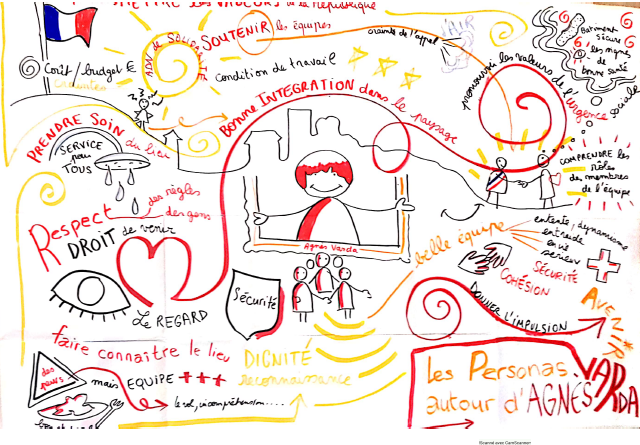 TRANSMETTRE les VALEURS de la République
SOUTENIR les équipes
crainte de l'appel
Bâtiment
sécure
les signes
de
bonne santé
Coût/budget €
condition de travail
Bonne INTEGRATION dans le paysage
promouvoir les valeurs de l'Urgence
sociale
PRENDRE SOIN du lieu
SERVICE
pour
TOUS
COMPRENDRE les
rôles
des membres
de l'équipe
Respect
des règles
des gens
DROIT de venir
Agnès Varda
belle équipe
entente, dynamisme
entraide
envie
sérieux
SÉCURITÉ
COHÉSION
Sécurité
LE REGARD
DONNER L'IMPULSION
AVENIR
faire connaître le lieu
DIGNITÉ
reconnaissance
des peurs
mais EQUIPE +++
le rol, incompréhension....
Les Personas
autour d'AGNÈS VARDA
Scanné avec CamScanner